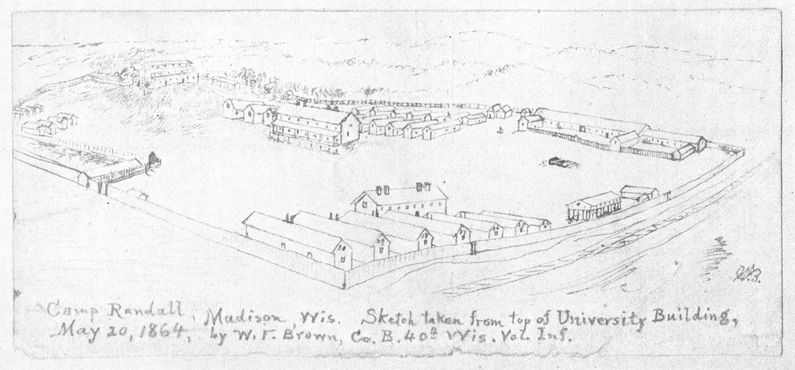 W.F.B.
Camp Randall, Madison, Wis. Sketch taken from top of University Building,
May 20, 1864, by W. F. Brown, Co. B. 40th Wis. Vol. Inf.